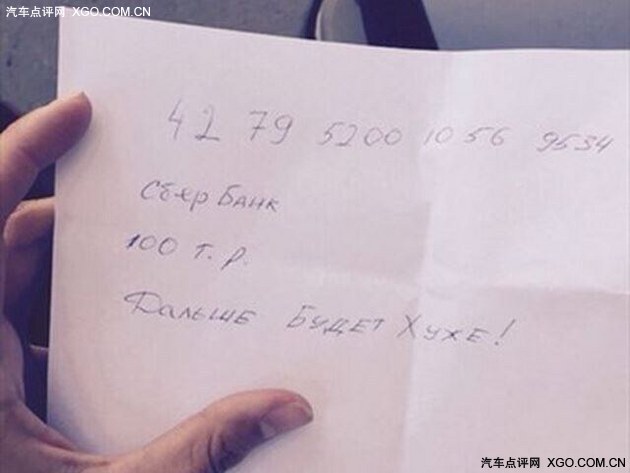 汽车点评网 XGO.COM.CN
42 79 5200 1056 9534
Сбер Банк
100 т.р.
Дальше Будет Хуже!
汽车点评网 XGO.COM.CN